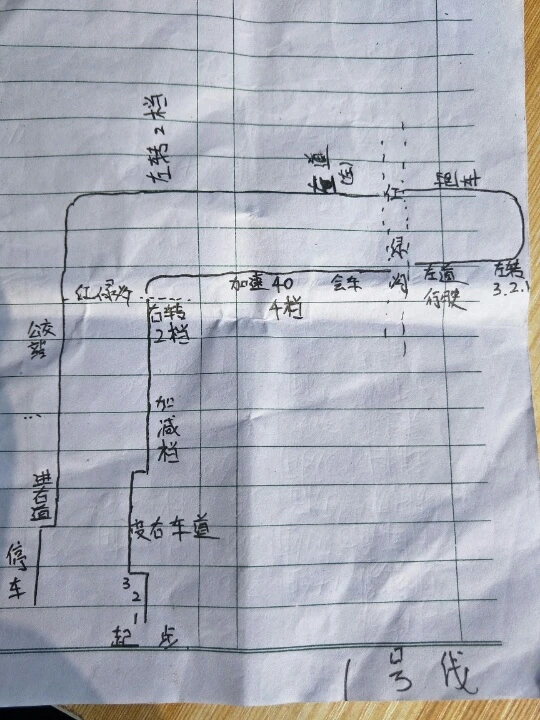 左转2档
直道
超车
红绿灯
加速40
4档
会车
左道
左转
3.2.1
公交站
...
右转
2档
加减档
进右道
变右车道
停车
3
2
1
起步
1号线